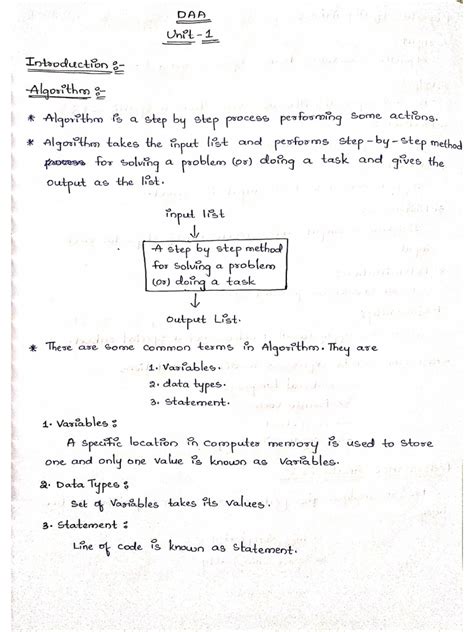 DAA
Unit - 1
Introduction :-
Algorithm :-
* Algorithm is a step by step process performing some actions.
* Algorithm takes the input list and performs step-by-step method
process for solving a problem (or) doing a task and gives the
output as the list.
input list
↓
A step by step method
for solving a problem
(or) doing a task
↓
Output List.
* There are some common terms in Algorithm. They are
1. Variables.
2. data types.
3. Statement.
1. Variables :
A specific location in computer memory is used to store
one and only one value is known as Variables.
2. Data Types :
Set of Variables takes its values.
3. Statement :
Line of code is known as statement.